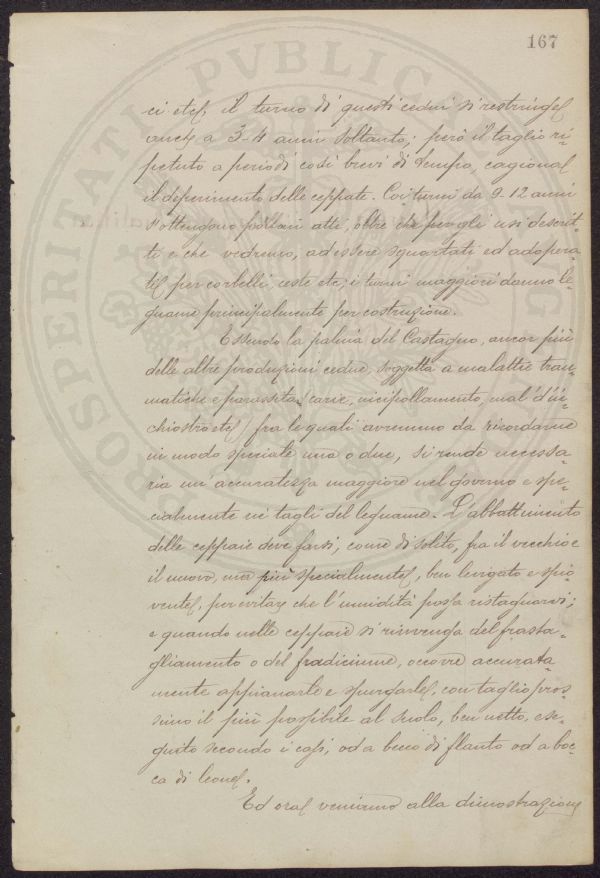 167
ci etc, il turno di questi cedui si restringe
anche a 3-4 anni soltanto; però il taglio ri-
petuto a periodi così brevi di tempo, cagiona
il deperimento delle ceppate. Coi turni da 9-12 anni
s'ottengono polloni atti, oltre che per gli usi descrit-
ti e che vedremo, ad essere squartati ed adopera-
ti per corbelli, ceste etc, i turni maggiori danno le-
gname principalmente per costruzione.
Essendo la palina del Castagno, ancor più
delle altre produzioni cedue, soggetta a malattie trau-
matiche e parassita, carie, incipollamento, mal d'in-
chiostro etc/ fra le quali avremmo da ricordarne
in modo speciale una o due, si rende necessa-
ria un'accuratezza maggiore nel governo e spe-
cialmente ne' tagli del legname. L'abbattimento
delle ceppaie deve farsi, come di solito, fra il vecchio e
il nuovo, ma più specialmente, ben levigato e spio-
vente, per evitare che l'umidità possa ristagnarvi;
e quando nelle ceppaie si rinvenga del frasta-
gliamento o del fradiciume, occorre accurata-
mente appianarle e spurgarle, con taglio pros-
simo il più possibile al suolo, ben netto, ese-
guito secondo i casi, od a becco di flauto od a boc-
ca di leone.
Ed ora veniamo alla dimostrazione
PROSPERITATI PVBLICAE